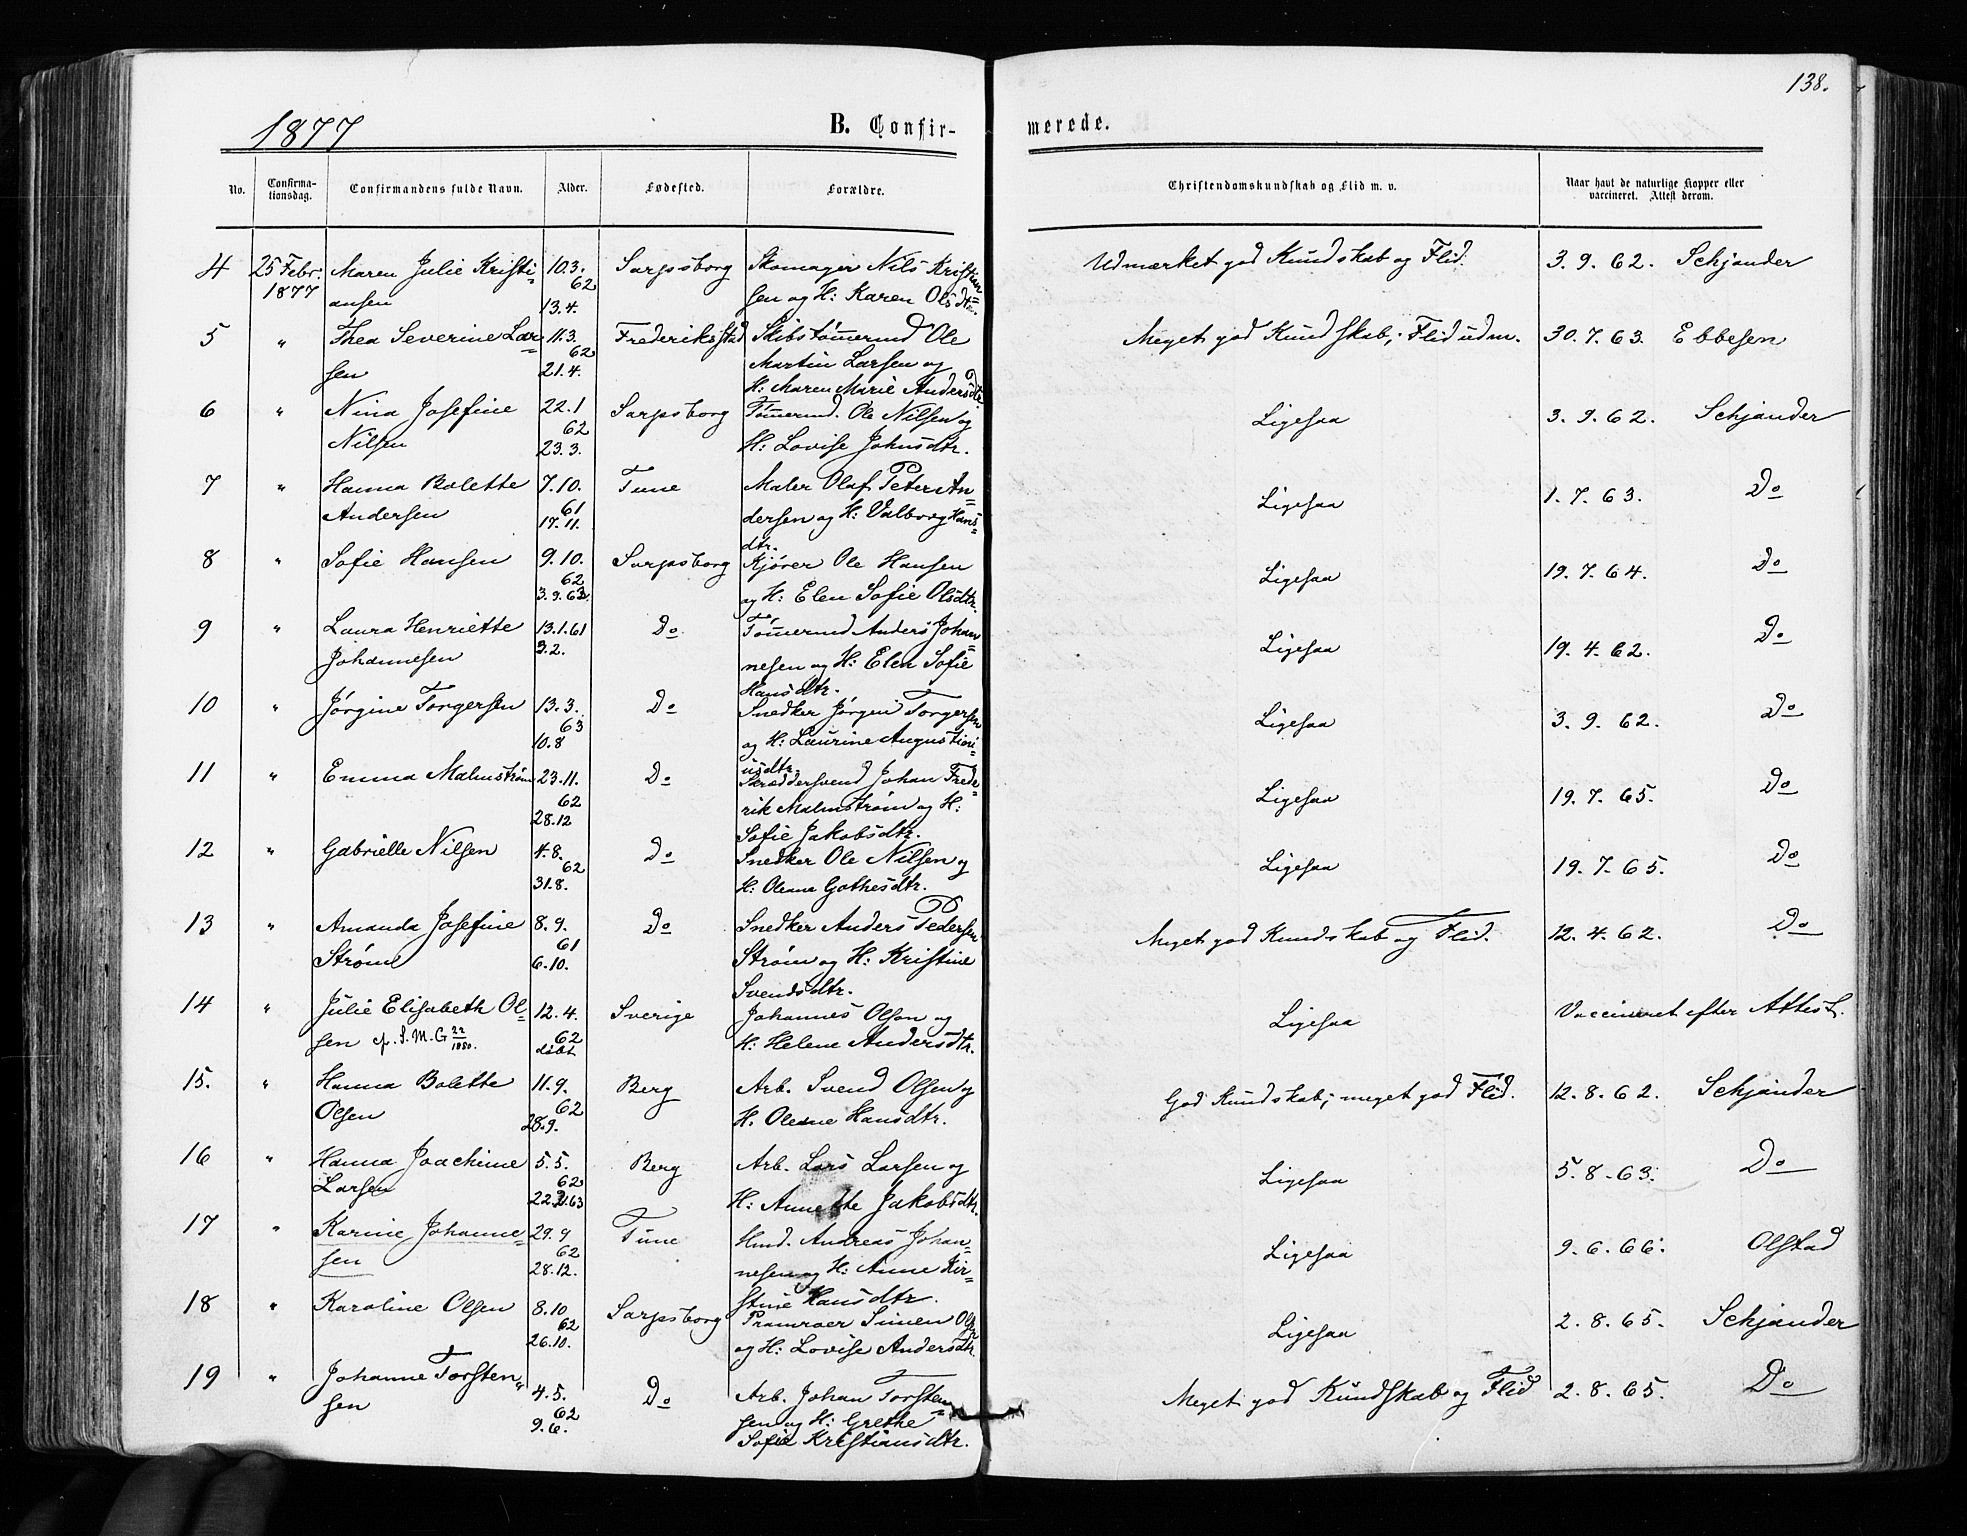 138.
1877
B. Confir-
merede.
No.
Confirma-
tionsdag.
Confirmandens fulde Navn.
Alder.
Fødested.
Forældre.
Christendomskundskab og Flid m. v.
Naar havt de naturlige Kopper eller
vaccineret. Attest derom.
4 25 Febr. Maren Julie Kristi- 10.3. Sarpsborg Skomager Nils Kristian Udmærket god Kundskab og Flid. 3. 9. 62. Schjander
1877 ansen 62 sen og H: Karen Olsdtr.
13.4.
5 " Thea Severine Lar- 11.3. Frederiksstad Skibstømermd Ole Meget god Kundskab; Flid udm. 30. 7. 63. Ebbesen
sen 62 Martin Larsen og
21.4. H: Maren Marie Andersdtr.
6 " Nina Josefine 22.1 Sarpsborg Tømermd. Ole Nilsen og Ligesaa 3. 9. 62. Schjander
Nilsen 62 H: Lovise Johnsdtr.
23.3.
7 " Hanna Bolette 7.10. Tune Maler Olaf Peter An- Ligesaa 1. 7. 63. Do
Andersen 61 dersen og H: Valborg Hans-
17.11. dtr.
8 " Sofie Hansen 9.10. Sarpsborg Kjører Ole Hansen Ligesaa 19. 7. 64. Do
62 og H: Elen Sofie Olsdtr.
3.9.63.
9 " Laura Henriette 13.1.61 Do Tømermd Anders Johan- Ligesaa 19. 4. 62. Do
Johannesen 3.2. nesen og H: Elen Sofie
Hansdtr.
10 " Jørgine Torgersen 13.3. Do Snedker Jørgen Torgersen Ligesaa 3. 9. 62. Do
63 og H: Laurine Augustini-
10.8 usdtr.
11 " Emma Malmstrøm 23.11. Do Skræddersvend Johan Frede- Ligesaa 19. 7. 65. Do
62 rik Malmstrøm og H:
28.12 Sofie Jakobsdtr.
12 " Gabrielle Nilsen 4.8. Do Snedker Ole Nilsen og Ligesaa 19. 7. 65. Do
62 H: Oleane Gathesdtr.
31.8.
13 " Amanda Josefine 8.9. Do Snedker Anders Pedersen Meget god Kundskab og Flid. 12. 4. 62. Do
Strøm 61 Strøm og H: Kristine
6.10. Svendsdtr.
14 " Julie Elisabeth Ol- 12.4. Sverige Johannes Olson og Ligesaa Vaccineret efter Attest.
sen cf. S.M.G 22/1880. 62 H: Helene Andersdtr.
døbt
15. " Hanna Bolette 11.9. Berg Arb. Svend Olsen og God Kundskab; meget god Flid. 12. 8. 62. Schjander
Olsen 62 H. Oleane Hansdtr.
28.9.
16 " Hanna Joachime 5.5. Berg Arb. Lars Larsen og Ligesaa 5. 8. 63. Do
Larsen 62 H: Annette Jakobsdtr.
17 " Karine Johanne- 29.9 Tune Hmd. Andreas Johan- Ligesaa 9. 6. 66. Olstad
sen 62 nesen og H: Anne Kir-
28.12. stine Hansdtr.
18 " Karoline Olsen 8.10 Sarpsborg Pramroer Simen Ol Ligesaa 2. 8. 65. Schjander
62 og H: Lovise Andersdtr.
26.10.
19 " Johanne Torsten- 4.5. Do Arb. Johan Torsten- Meget god Kundskab og Flid 2. 8. 65. Do
sen 62 sen og H: Grethe
9.6. Sofie Kristiansdtr.